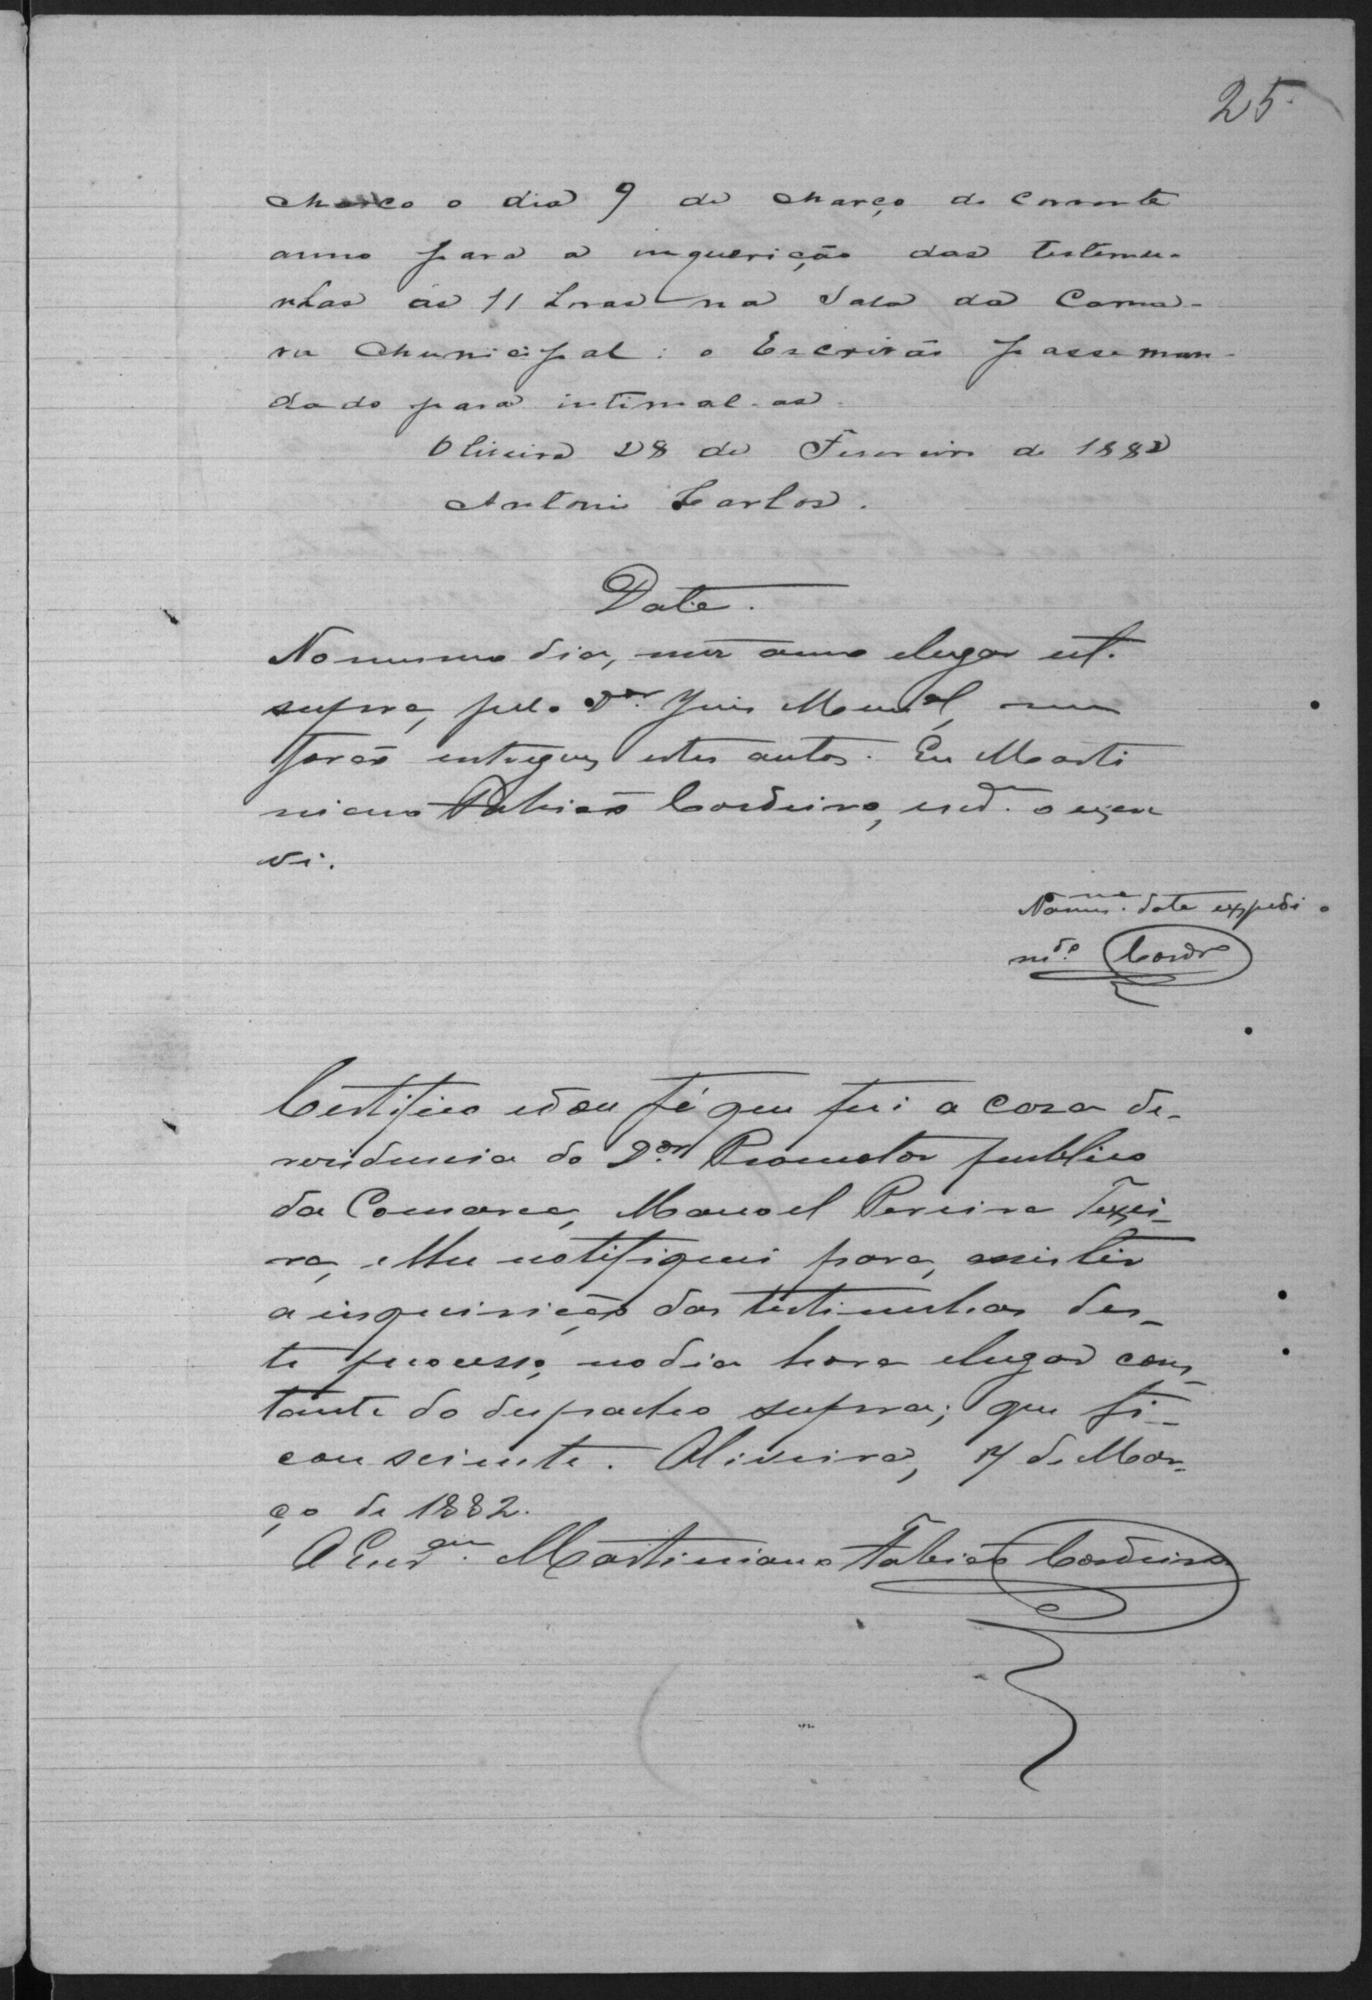 25
Marco o dia 9 de Março do corrente
anno para a inquerição das testemu-
nhas ás 11 horas na Sala da Cama-
ra Municipal: o Escrivão passe man-
dado para intimal-as.
Oliveira 28 de Fevereiro de 1882
Antonio Carlos.
Data.
No mesmo dia, mez anno e lugar ut.
supra, pelo Dor. Juiz Mun.al, me
forão entregues estes autos. Eu Marti
niano Fabião Cordeiro, escr.am o escre
vi.
Na mes.ma data expedi
m.do Cordro
Certifico e dou fé que fui a casa de
residencia do Dor. Promotor publico
da Comarca, Manoel Pereira Teixei-
ra, e lhe notifiquei para, assistir
a inquirição das testimunhas des-
te processo, no dia hora e lugar cons-
tante do despacho supra; que fi-
cou sciente. Oliveira, de Mar-
ço de 1882.
O Escr.am Martiniano Fabião Cordeiro